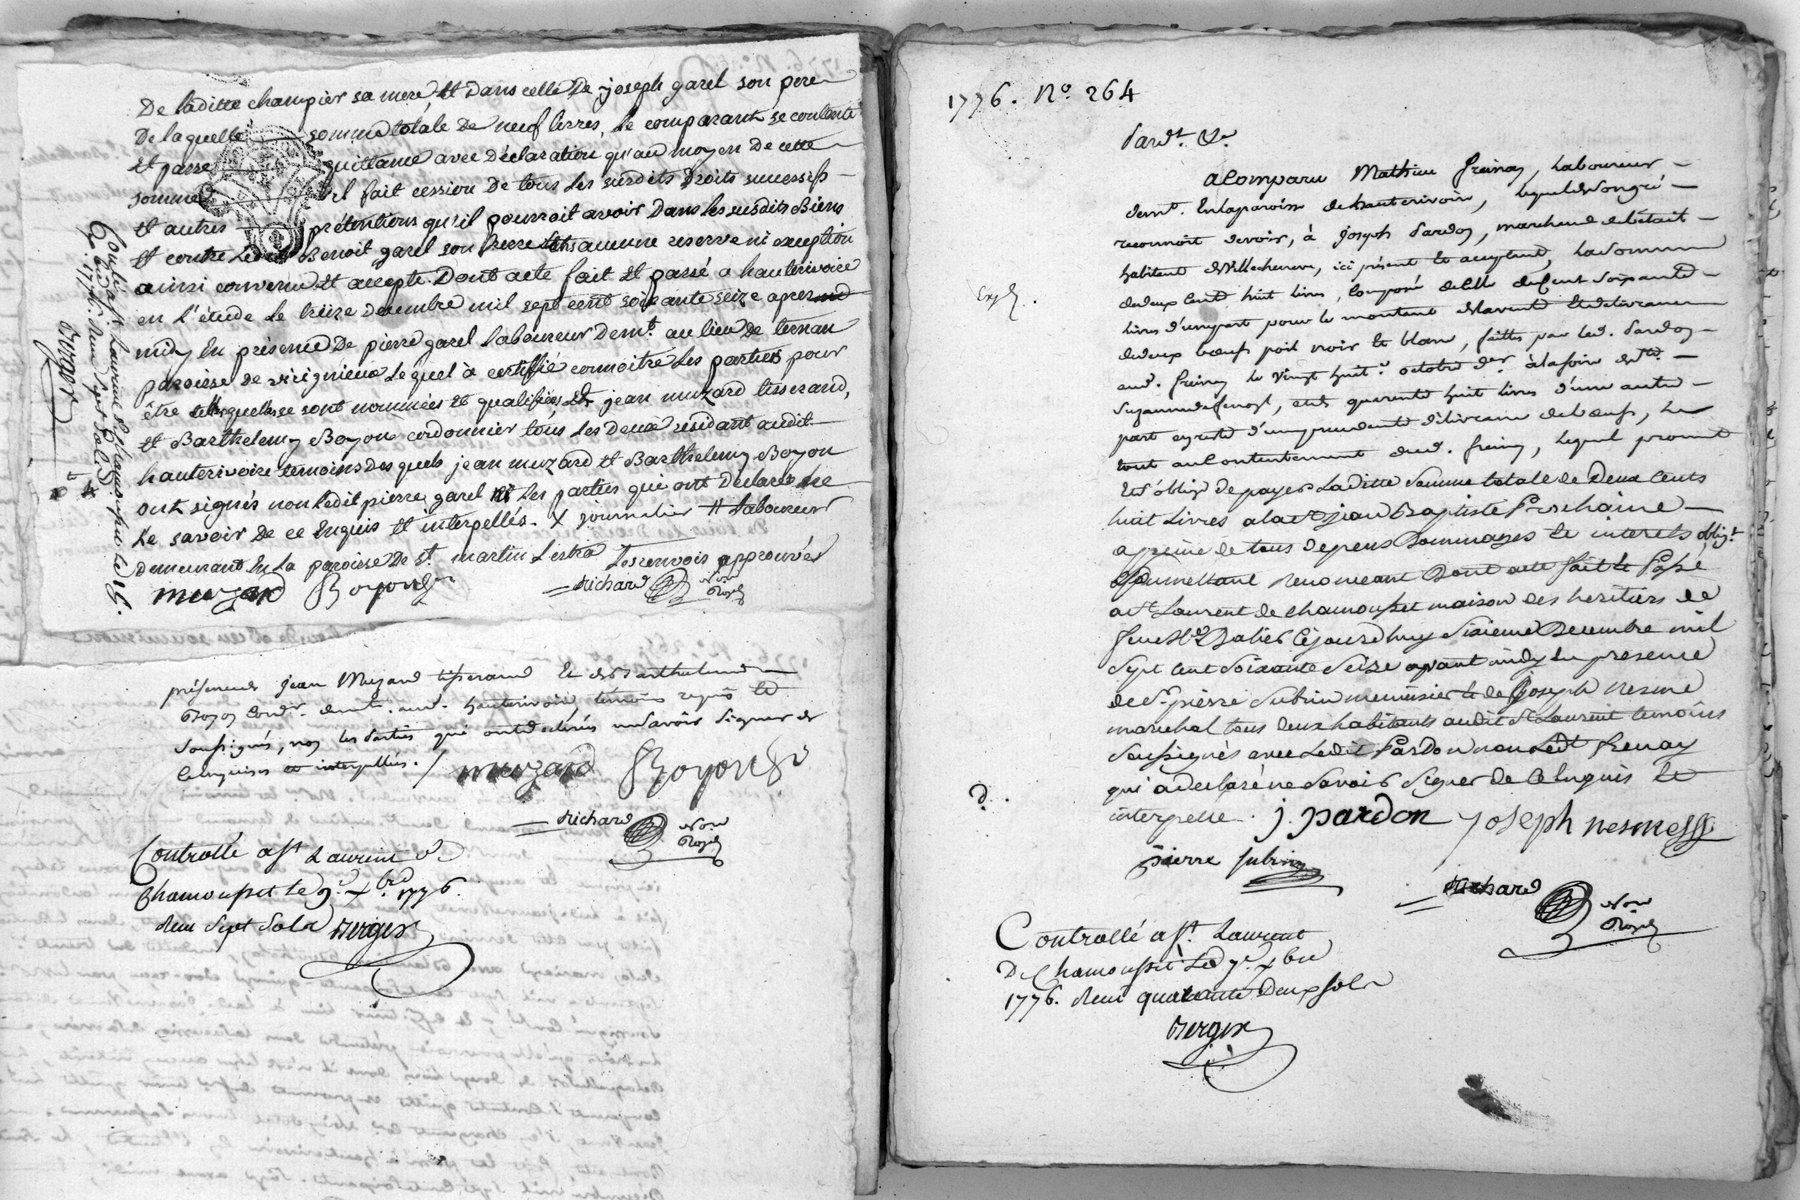 De laditte champier sa mere, Et dans celle De joseph garel son pere
De laquelle somme totale De neuf livres, Le comparant se contente
Et passe quittance avec Déclaration qu'au moyen De cette
somme il fait cession De tous Les susdits Droits successifs
et autres prétentions qu'il pourroit avoir Dans Les susdits Biens
Et contre Ledit Benoit garel son frere sans aucune reserve ni exception
ainsi convenu Et accepté. Dont acte fait Et passé a hauterivoire
en L'étude Le treize decembre mil sept cent soixante seize apres
midy En présence De pierre garel Laboureur Demt. au lieu De ternan
paroisse de virigneux Lequel a certiffié connoitre Les parties pour
être telles quelles se sont nommées Et qualifiées Et jean muzard tisserand,
et Barthelemy Boyon cordonnier tous Les Deux résidant audit
hauterivoire temoins Desquels jean muzard Et Barthelemy Boyon
ont signés non Ledit pierre garel ni Les parties que ont Déclaré ne
Le savoir De ce Enquis Et interpellés. X journalier # Laboureur
Demeurant En La paroisse De St. martin Lestra Les renvois approuvés
muzard Boyon
Richard Nore Royal
Controllé a St. Laurent de Chamousset le 15.
Xbre. 1776. Reçu sept sols
Berger
présence de jean Muzard tisserand Et de Barthelemy
Boyon Cordr. demt. aud. hauterivoire, témoins requis et
soussignés, non les parties qui ont déclarés ne savoir signer de
ce enquises et interpellés.
muzard Boyon
Richard Nore Royal
Controllé a St. Laurent de
Chamousset le 9. Xbre 1776.
Reçu Sept Sols Berger
1776. No. 264
Pardt. &c.
a Comparu Mathieu freinay, Laboureur
demt. En la paroisse de hauterivoire, lequel de son gré
reconnoit devoir, à joseph Pardon, marchand de bétail
habitant de Villecheneve, ici présent et acceptant, la somme
de deux Cent huit livres, Composée de Celle de Cent soixante
livres d'une part pour le montant de la vente et délivrance
de deux bœufs poil noir et blanc, faittes par led. Pardon
aud. freinay le vingt huit octobre der. à la foire de Ste.
Exp.
part et reste d'une précedente délivrance de bœufs, le
tout au Contentement dud. freinay, lequel promet
Et s'oblige de payer Laditte Somme totale de Deux Cents
huit Livres a la St. jean Baptiste Prochaine
a peine de tous depens Dommages Et interets, oblig.t
Soumettant Renonceant Dont acte fait Et Passé
a St. Laurent de chamousset maison des heritiers de
Cejourdhuy Sixieme Decembre mil
Sept Cent Soixante Seize avant midy En presence
de Sr. pierre Subrin menuisier Et de Joseph nesme
marechal tous Deux habitants audit St. Laurent temoins
Soussignés avec Ledit Pardon non Ledt. freinay
qui a declaré ne Savoir Signer de Ce Enquis Et
interpellé.
D.
j. pardon joseph nesme
pierre subrin
Richard Nore Royal
Controllé a St. Laurent
De Chamousset Le 7e. Xbre
1776. Reçu quarante Deux sols
Berger